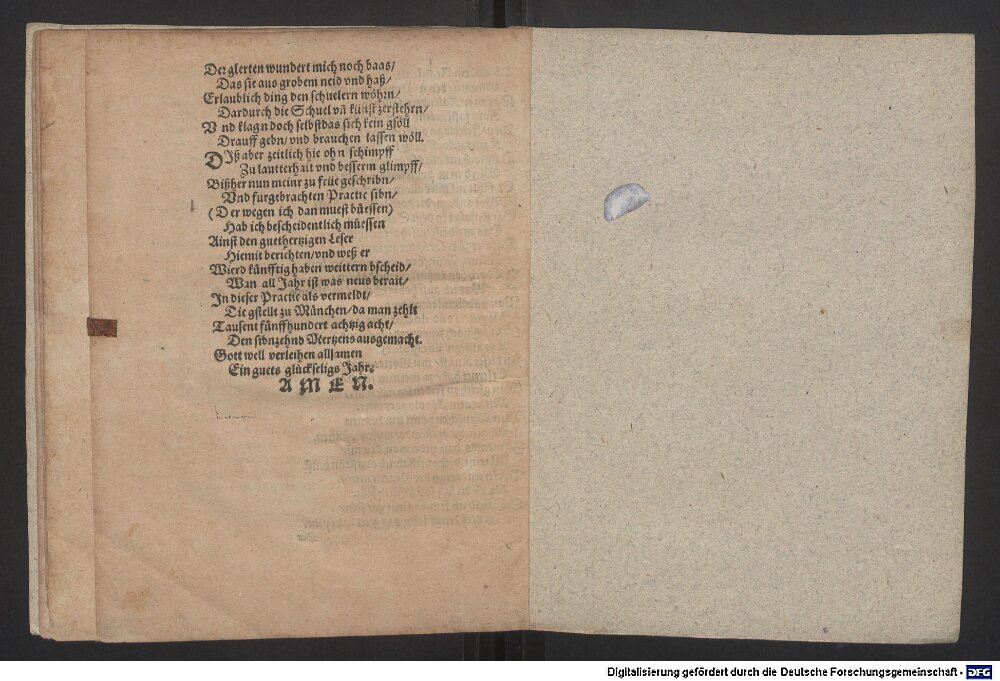 Der glerten wundert mich noch baas/
Das sie aus grobem neid vnd haß/
Erlaublich ding den schuelern wöhrn/
Dardurch die Schuel vñ künst zerstehrn/
Vnd klagn doch selbst das sich kein gsöll
Drauff gebn/ vnd brauchen lassen wöll.
Diß aber zeitlich hie ohn schimpff
Zu lautterhait vnd besserm glimpff/
Bißher nun meinr zu früe geschribn/
Vnd furgebrachten Practic sibn/
(Der wegen ich dan muest büessen)
Hab ich bescheidentlich müessen
Ainst den guethertzigen Leser
Hiemit berichten/ vnd weß er
Wierd künfftig haben weittern bscheid/
Wan all Jahr ist was neus berait/
In dieser Practic als vermeldt/
Die gstellt zu München/ da man zehlt
Tausent fünffhundert achtzig acht/
Den sibnzehnd Mertzens ausgemacht.
Gott well verleihen allsamen
Ein guets glückseligs Jahr.
AMEN.
Digitalisierung gefördert durch die Deutsche Forschungsgemeinschaft - DFG